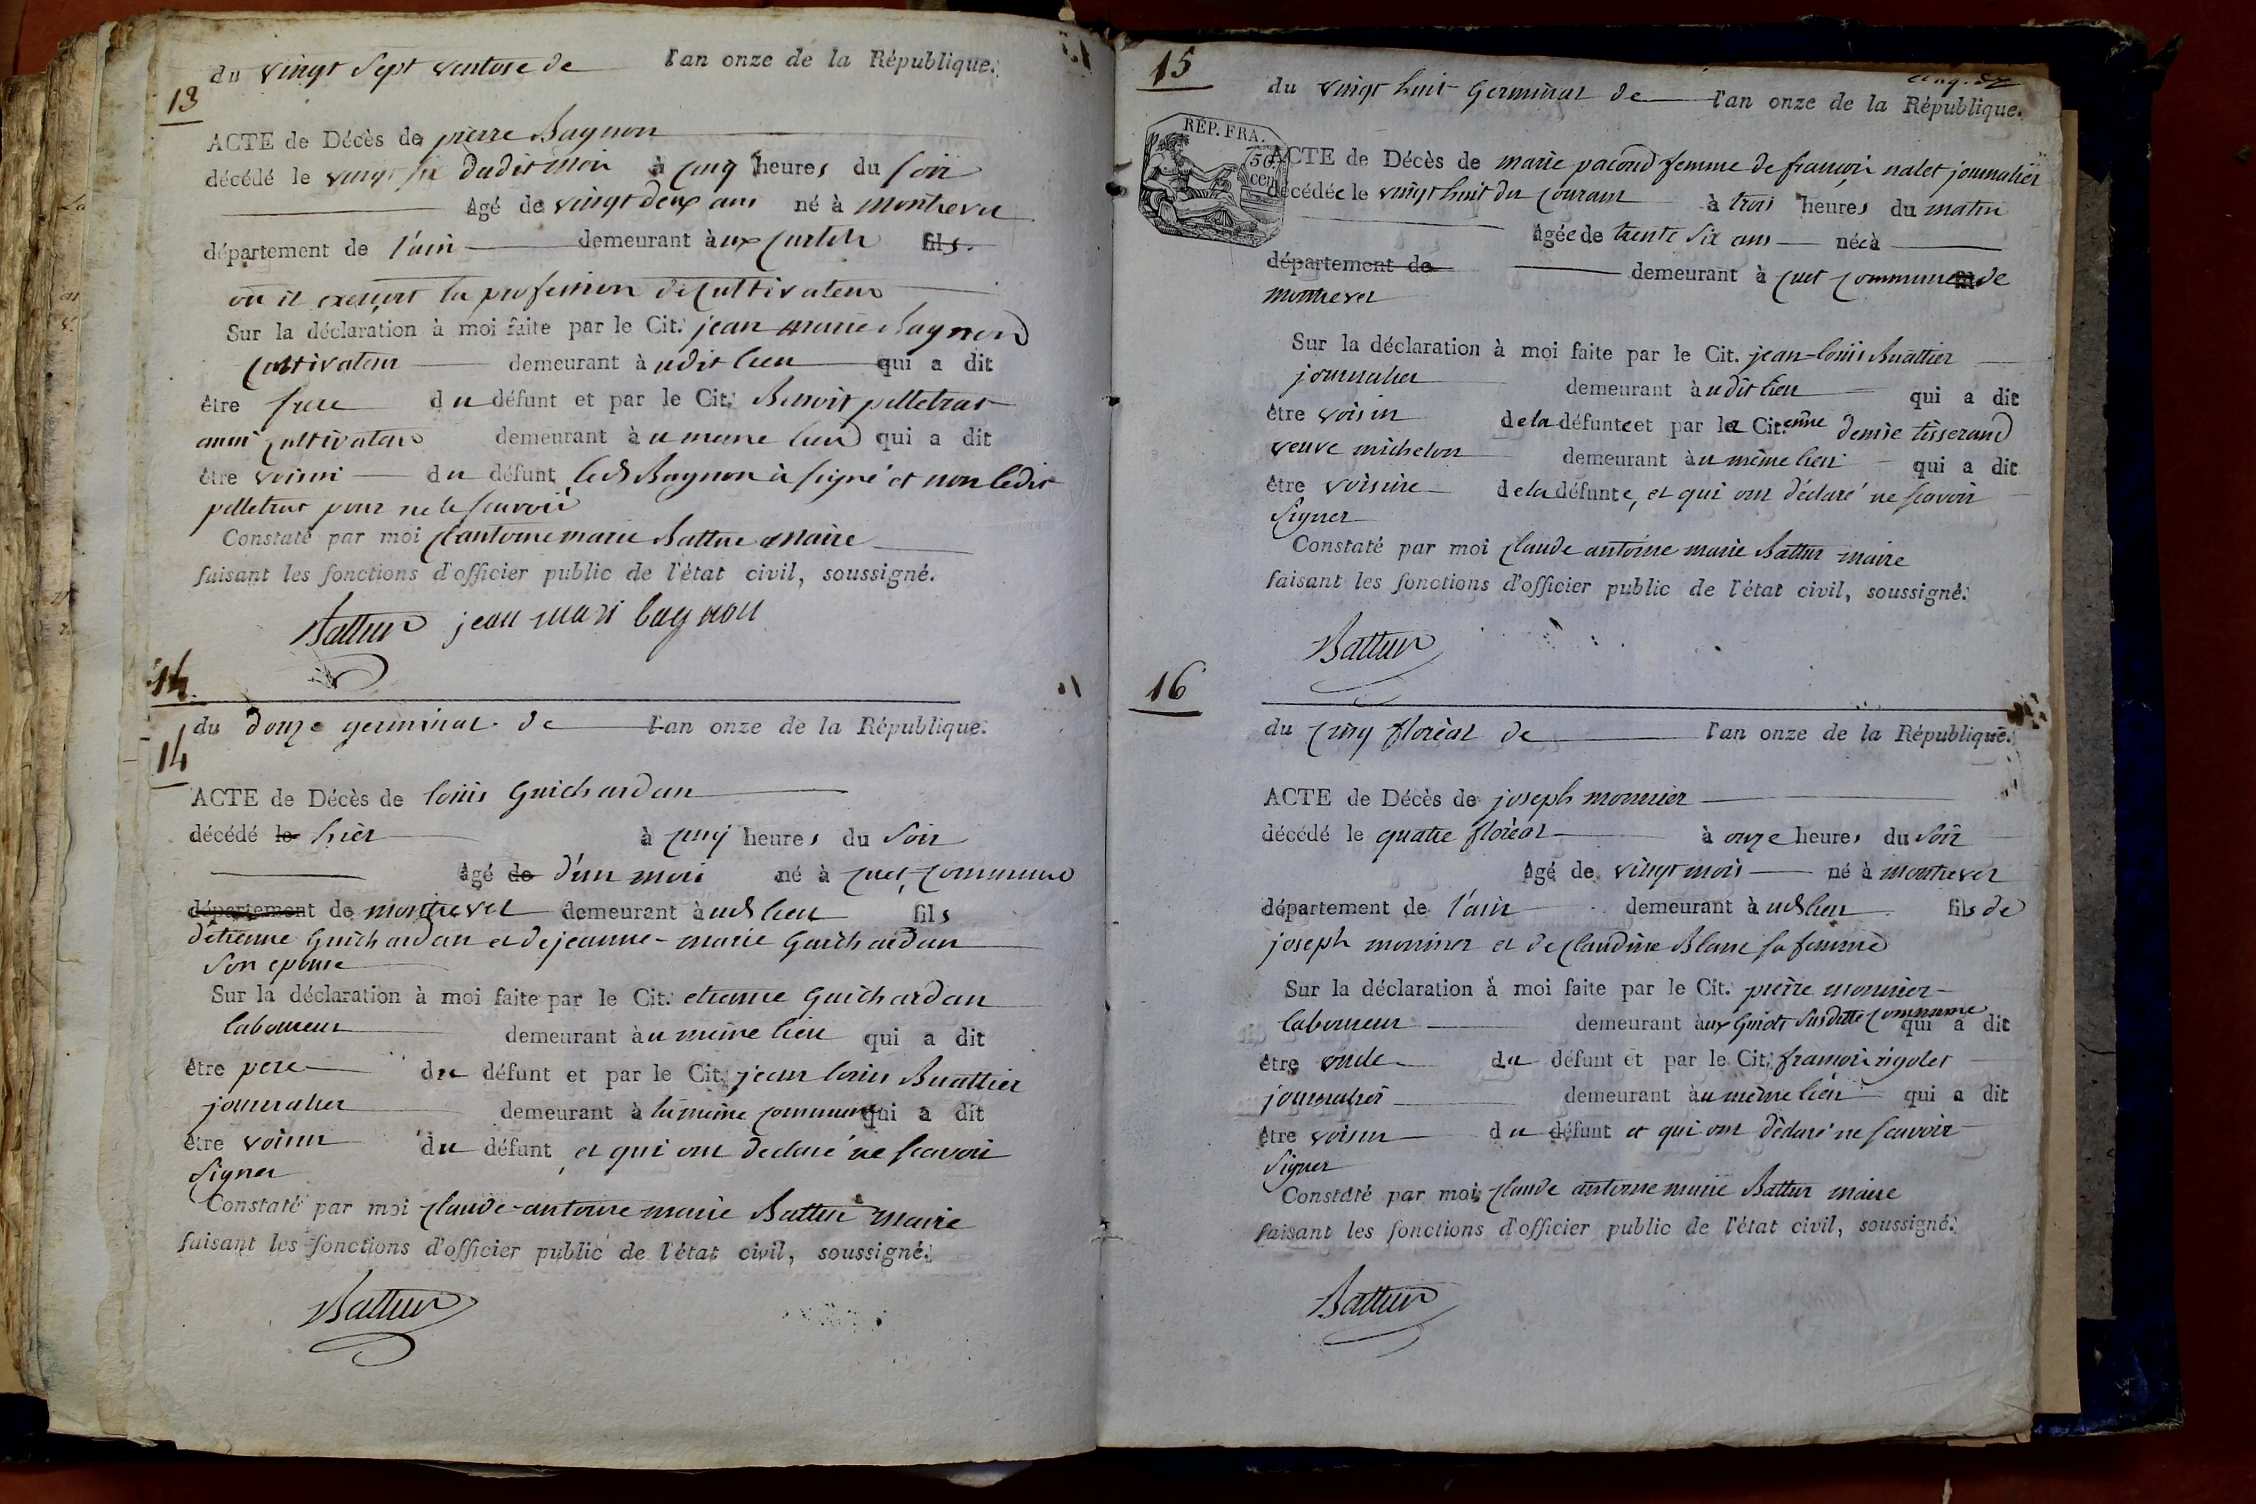 13
du vingt sept ventose de l'an onze de la République.
ACTE de Décès de pierre Bagnon
décédé le vingt six dudit mois à cinq heures du soir
âgé de vingt deux ans né à montrevel
département de l'ain demeurant aux curtels fils
où il exerçoit la profession de cultivateur
Sur la déclaration à moi faite par le Cit. jean marie Bagnon
cultivateur demeurant àudit lieu qui a dit
être frere du défunt et par le Cit. Benoit pelletrat
aussi cultivateur demeurant àu meme lieu qui a dit
être voisin du défunt led Bagnon à signé et non ledit
pelletrat pour ne le scavoir
Constaté par moi Cl antoine marie Battur maire
faisant les fonctions d'officier public de l'état civil, soussigné.
Battur jean mari bagnon
14.
du douze germinal de l'an onze de la République.
14
ACTE de Décès de louis Guichardan
décédé le hier à cinq heures du soir
âgé de d'un mois né à cuet, commune
département de montrevel demeurant àud lieu fils
d'etienne Guichardan et de jeanne-marie Guichardan
son epouse
Sur la déclaration à moi faite par le Cit. etienne Guichardan
laboureur demeurant àu meme lieu qui a dit
être pere du défunt et par le Cit. jean louis Buattier
journalier demeurant à la même commune qui a dit
être voisin du défunt, et qui ont declaré ne scavoir
signer
Constaté par moi claude-antoine marie Battur maire
faisant les fonctions d'officier public de l'état civil, soussigné.
Battur
15
du vingt huit Germinal de l'an onze de la République.
RÉP. FRA.
50 cen
ACTE de Décès de marie pacoud femme de françois nalet journalier
décédée le vingt huit du courant à trois heures du matin
âgée de trente six ans née à
département de demeurant à cuet commune fil de
montrevel
Sur la déclaration à moi faite par le Cit. jean-louis Buattier
journalier demeurant àudit lieu qui a dit
être voisin de la défunte et par la Cit.enne denise tisserand
veuve michelon demeurant àu même lieu qui a dit
être voisine de la défunte, et qui ont déclaré ne scavoir
signer
Constaté par moi claude antoine marie Battur maire
faisant les fonctions d'officier public de l'état civil, soussigné.
Battur
16
du cinq floréal de l'an onze de la République.
ACTE de Décès de joseph monnier
décédé le quatre floréal à onze heures du soir
âgé de vingt mois né à montrevel
département de l'ain demeurant à ud lieu fils de
joseph monnier et de claudine Blanc sa femme
Sur la déclaration à moi faite par le Cit. pierre monnier
laboureur demeurant àux Guiots susditte commune qui a dit
être oncle du défunt et par le Cit. françois rigolet
journalier demeurant àu même lieu qui a dit
être voisin du défunt et qui ont déclaré ne scavoir
signer
Constaté par moi claude antoine marie Battur maire
faisant les fonctions d'officier public de l'état civil, soussigné.
Battur